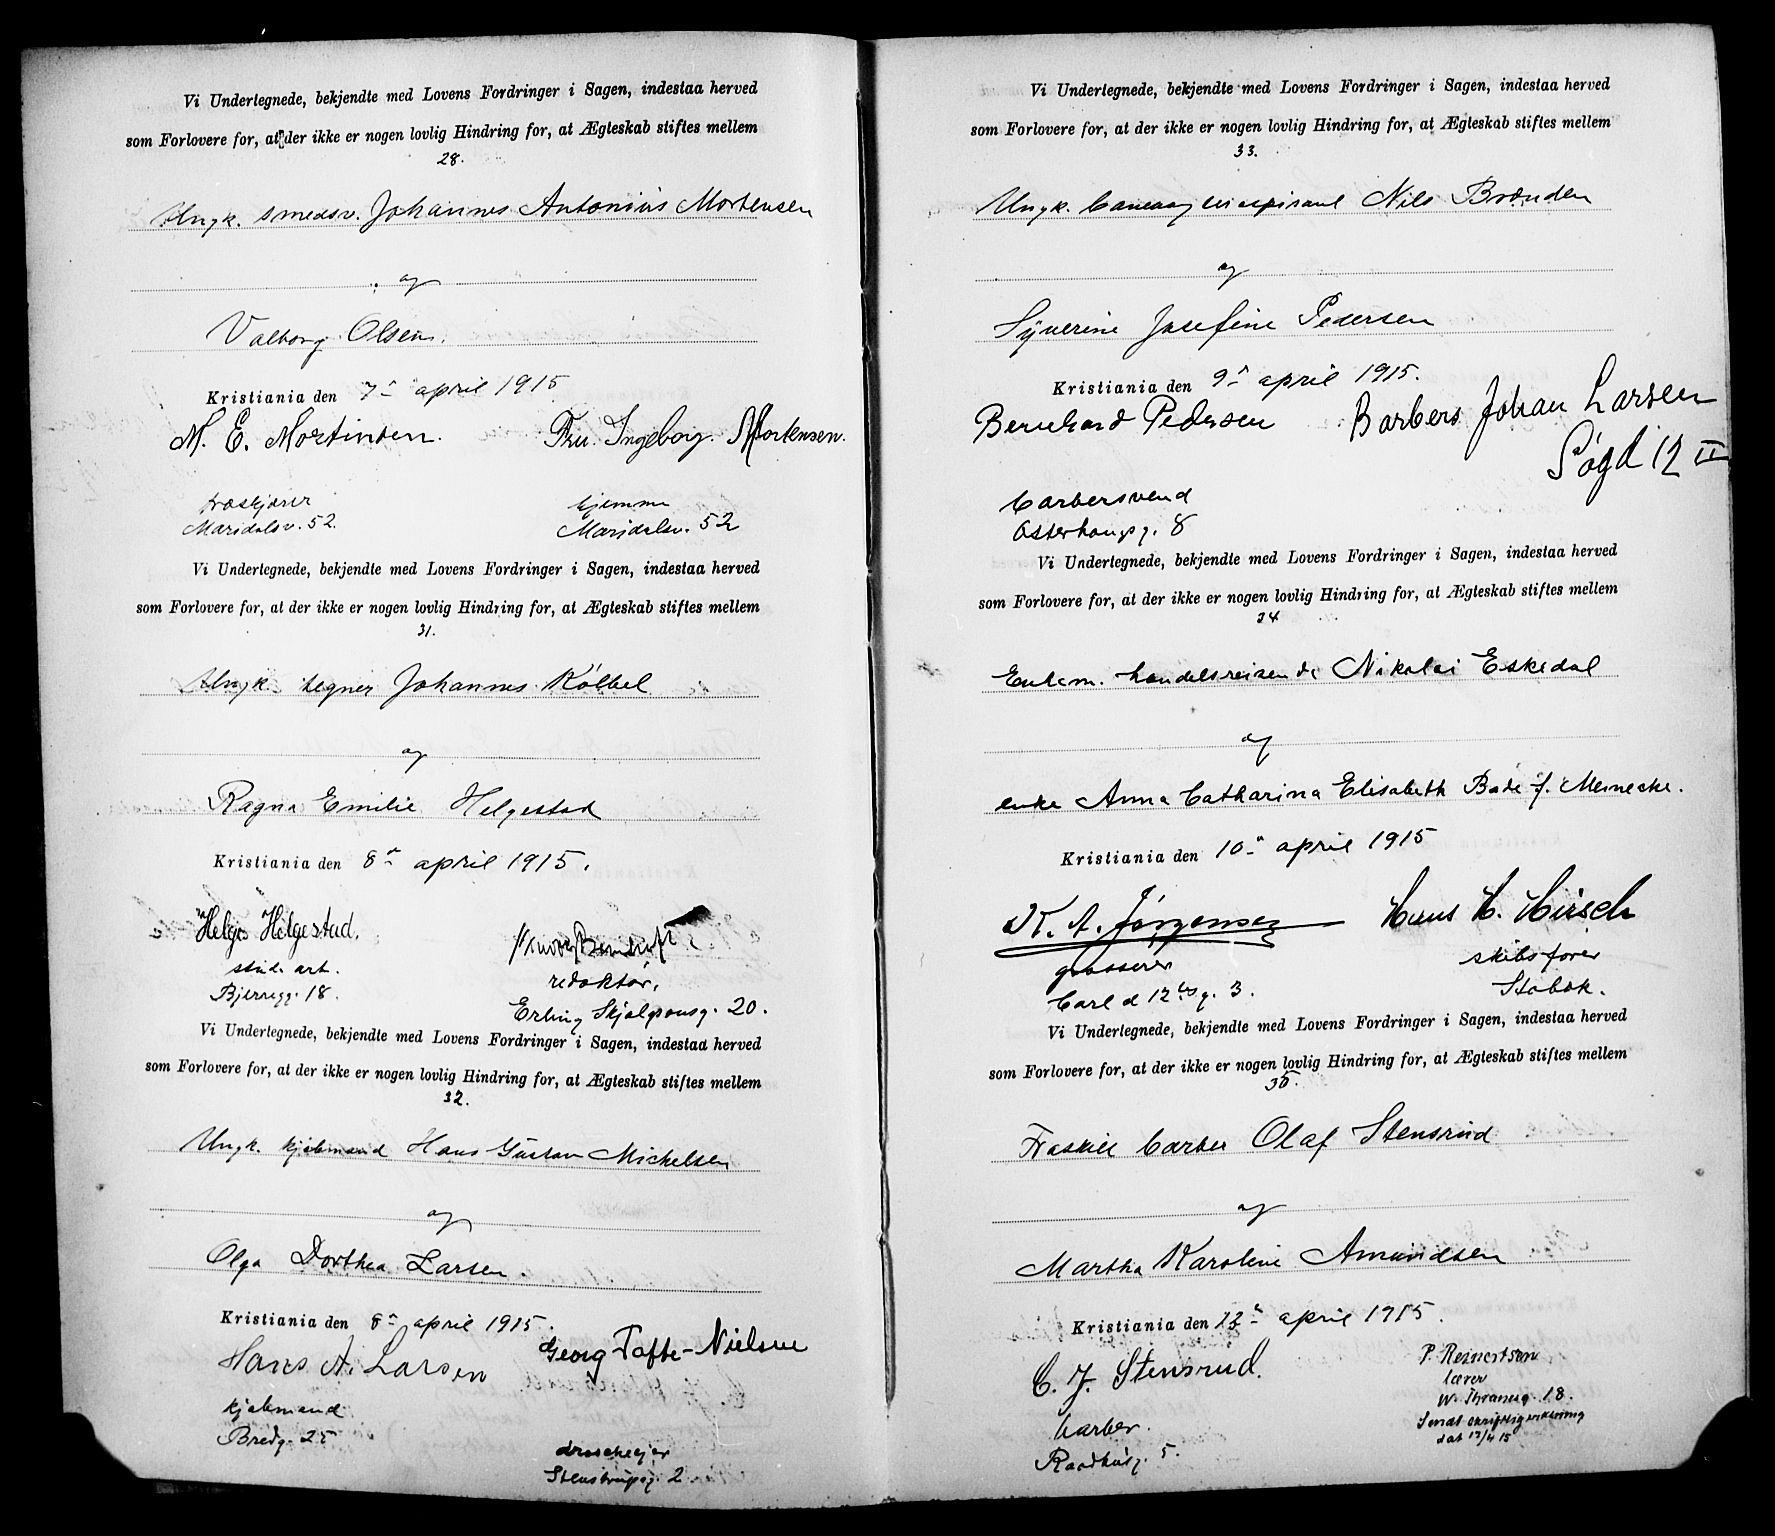 Vi Undertegnede, bekjendte med Lovens Fordringer i Sagen, indestaa herved
som Forlovere for, at der ikke er nogen lovlig Hindring for, at Ægteskab stiftes mellem
28.
Ungk. smedsv. Johannes Antonius Mortensen
og
Valborg Olsen.
Kristiania den 7de april 1915.
M. E. Mortinsen. Fru. Ingeborg. Mortensen.
træskjærer hjemme
Maridalsv. 52. Maridalsv. 52
Vi Undertegnede, bekjendte med Lovens Fordringer i Sagen, indestaa herved
som Forlovere for, at der ikke er nogen lovlig Hindring for, at Ægteskab stiftes mellem
31.
Ungk. tegner Johannes Kölbel
og
Ragna Emilie Helgestad
Kristiania den 8de april 1915.
Helge Helgestad.
stud. art. redaktør,
Bjerregg. 18. Erling Skjalgsonsg. 20.
Vi Undertegnede, bekjendte med Lovens Fordringer i Sagen, indestaa herved
som Forlovere for, at der ikke er nogen lovlig Hindring for, at Ægteskab stiftes mellem
32.
Ungk. kjøbmand Hans Gustav Michelsen
og
Olga Dorthea Larsen.
Kristiania den 8de april 1915.
Hans A. Larsen Georg Tafte-Nielsen
kjøbmand droscheejer
Bredg. 25 Stenstrupsg. 2
Vi Undertegnede, bekjendte med Lovens Fordringer i Sagen, indestaa herved
som Forlovere for, at der ikke er nogen lovlig Hindring for, at Ægteskab stiftes mellem
33.
Ungk. Nils Brænden
og
Syverine Josefine Pedersen
Kristiania den 9de april 1915.
Bernhard Pedersen Barbers Johan Larsen
Søgd 12 II
barbersvend
Østerhausg. 8
Vi Undertegnede, bekjendte med Lovens Fordringer i Sagen, indestaa herved
som Forlovere for, at der ikke er nogen lovlig Hindring for, at Ægteskab stiftes mellem
34
Enkem. handelsreisende Nikolai Eskedal
og
enke Anna Catharina Elisabeth Bade f. Meinecke.
Kristiania den 10de april 1915
K. A. Jørgensen Hans H. Hirsch
grosserer skibsfører
Carl d 12tes g. 3. Stabæk.
Vi Undertegnede, bekjendte med Lovens Fordringer i Sagen, indestaa herved
som Forlovere for, at der ikke er nogen lovlig Hindring for, at Ægteskab stiftes mellem
35.
Fraskilt barber Olaf Stensrud
og
Martha Karoline Amundsen
Kristiania den 12te april 1915.
C. J. Stensrud. P. Reinertsen
barber. lærer
Raadhusg. 5. W. Thranesg. 18.
Sendt skriftlig erklæring
dat 12/4 15